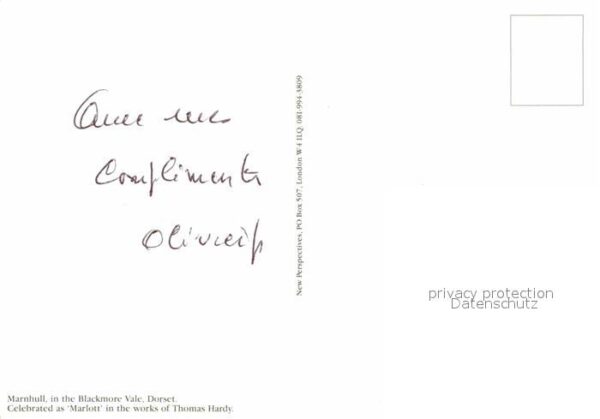 Avec mes
Compliments
New Perspectives, PO Box 507, London W4 1LQ. 081-994-3809
privacy protection
Datenschutz
Marnhull, in the Blackmore Vale, Dorset.
Celebrated as 'Marlott' in the works of Thomas Hardy.